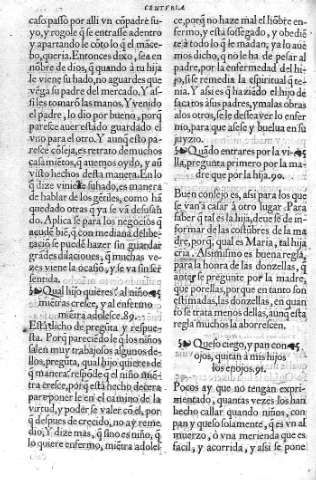 CENTVRIA
caso passò por alli vn cōpadre su
yo, y rogole q̃ se entrasse adentro
y apartando le cōto lo q̃ el māce-
bo, queria. Entonces dixo, sea en
nōbre de dios, q̃ quando à tu hija
le viene su hado, no aguardes que
vēga su padre del mercado. Y as-
si les tomarō las manos. Y venido
el padre, lo dio por bueno, porq̃
paresce auer estado guardado el
vno para el otro. Y aunq̃ esto pa-
resce cōseja, es retrato de muchos
casamiētos, q̃ auemos oydo, y aū
visto hechos desta manera. En lo
q̃ dize viniele su hado, es manera
de hablar de los gētiles, como hā
quedado otras q̃ ya se và desusan
do. Aplica se para los negocios q̃
acude biē, q̃ con mediana delibe-
tació se puedē hazer sin guardar
grādes dilaciones, q̃ muchas ve-
zes viene la ocasiō, y se va sin ser
sentida.
Qual hijo quieres? al niño
miētras cresce, y al enfermo
miētra adolesce. 89.
Esta dicho de pregūta y respue-
sta. Porq̃ pareciēdo q̃ los niños
salen muy trabajosos algunos de-
llos, pregūta, qual hijo quieres de
q̃ manera? respōde q̃ el niño miē-
tra cresce, porq̃ està hecho de cera
para poner le en el camino de la
virtud, y poder se valer cō el, por
q̃ despues de crecido, no ay reme
dio, Y dize mas, q̃ sino es niño, q̃
lo quiere enfermo, miētra adoles
ce, porq̃ no haze mal el hōbre en-
fermo, y està sossegado, y obediē
te à todo lo q̃ le madan, ya lo aue
mos dicho, q̃ no le ha de pesar al
padre, por la enfermedad del hi-
jo, si se remedia la espiritual q̃ te-
nia. Y assi es q̃ haziēdo el hijo de
sacatos à sus padres, y malas obras
a los otros, se le dessea ver lo enfer
mo, para que asese y buelua en su
juyzio.
Quādo entrares por la vi-
lla, pregunta primero por la ma-
dre que por la hija. 90.
Buen consejo es, assi para los que
se van à casar à otro lugar. Para
saber q̃ tal es la hija, deue se de in-
formar de las costūbres de la ma
dre, porq̃, qual es Maria, tal hija
cria. Assimismo es buena regla,
para la honra de las donzellas, q̃
antes se pregunte por la madre,
que por ellas, porque en tanto son
estimadas, las donzellas, en quan
to se trata menos dellas, aunq̃ esta
regla muchos la aborrescen.
Queso ciego, y pan con
ojos, quitan à mis hijos
los enojos. 91.
Pocos ay que no tengan exprī-
mentado, quantas vezes los han
hecho callar quando niños, con
pan y queso solamente, q̃ es vn al
muerzo, ò vna merienda que es
facil, y acorrida, y assi se pone